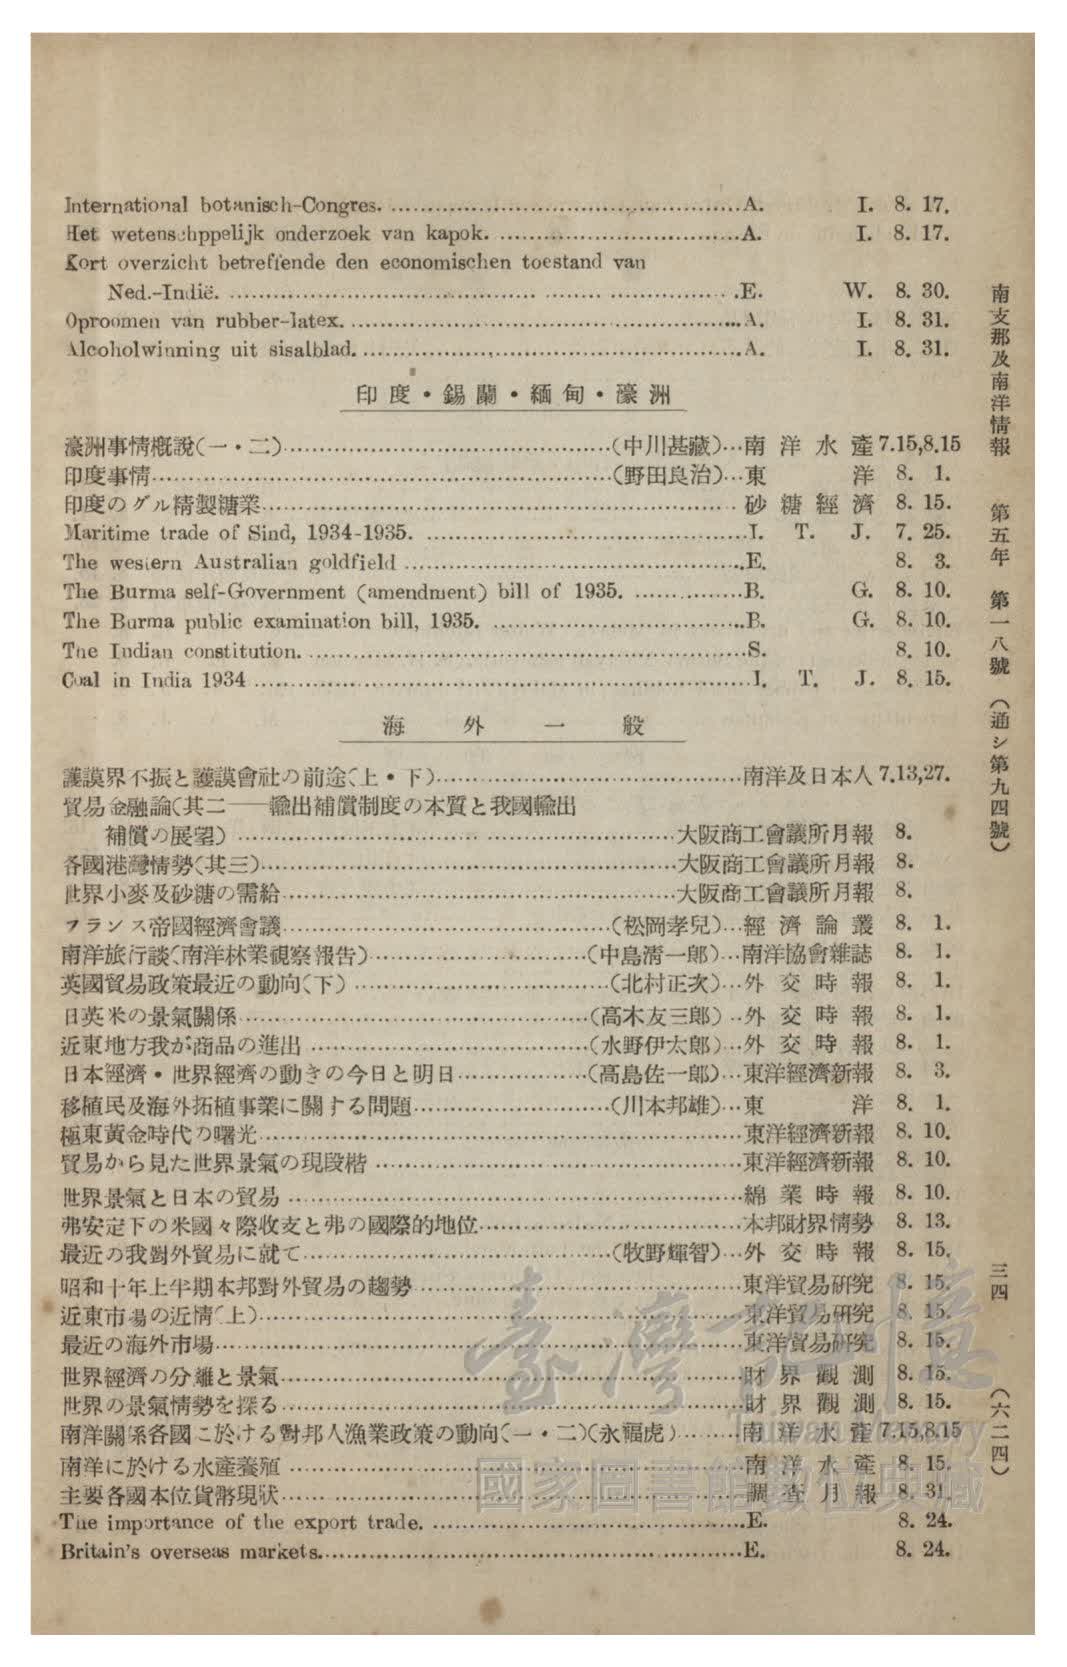 International botanisch-Congres. ........................................A. I. 8. 17.
Het wetenschppelijk onderzoek van kapok. ................................A. I. 8. 17.
Kort overzicht betreffende den economischen toestand van
Ned.-Indië. ........................................E. W. 8. 30.
Oproomen van rubber-latex. ........................................A. I. 8. 31.
Alcoholwinning uit sisalblad. ........................................A. I. 8. 31.
印度・錫蘭・緬甸・濠洲
濠洲事情概說(一・二)................................(中川甚藏)...南洋水產 7.15,8.15
印度事情........................................(野田良治)...東洋 8. 1.
印度のグル精製糖業........................................砂糖經濟 8. 15.
Maritime trade of Sind, 1934-1935. ................................I. T. J. 7. 25.
The western Australian goldfield ................................E. 8. 3.
The Burma self-Government (amendment) bill of 1935. ................B. G. 8. 10.
The Burma public examination bill, 1935. ................................B. G. 8. 10.
The Indian constitution. ........................................S. 8. 10.
Coal in India 1934 ........................................I. T. J. 8. 15.
海外一般
護謨界不振と護謨會社の前途(上・下)................................南洋及日本人 7.13,27.
貿易金融論(其二——輸出補償制度の本質と我國輸出
補償の展望) ........................................大阪商工會議所月報 8.
各國港灣情勢(其三)........................................大阪商工會議所月報 8.
世界小麥及砂糖の需給........................................大阪商工會議所月報 8.
フランス帝國經濟會議................................(松岡孝兒)...經濟論叢 8. 1.
南洋旅行談(南洋林業視察報告)........................(中島淸一郞)...南洋協會雜誌 8. 1.
英國貿易政策最近の動向(下) ........................(北村正次)...外交時報 8. 1.
日英米の景氣關係................................(高木友三郞)...外交時報 8. 1.
近東地方我が商品の進出 ........................(水野伊太郞)...外交時報 8. 1.
日本經濟・世界經濟の動きの今日と明日................(高島佐一郞)...東洋經濟新報 8. 3.
移植民及海外拓植事業に關する問題................(川本邦雄)...東洋 8. 1.
極東黃金時代の曙光........................................東洋經濟新報 8. 10.
貿易から見た世界景氣の現段楷 ................................東洋經濟新報 8. 10.
世界景氣と日本の貿易 ........................................綿業時報 8. 10.
弗安定下の米國々際收支と弗の國際的地位................................本邦財界情勢 8. 13.
最近の我對外貿易に就て................................(牧野輝智)...外交時報 8. 15.
昭和十年上半期本邦對外貿易の趨勢................................東洋貿易硏究 8. 15.
近東市場の近情(上)........................................東洋貿易硏究 8. 15.
最近の海外市場........................................東洋貿易硏究 8. 15.
世界經濟の分離と景氣........................................財界觀測 8. 15.
世界の景氣情勢を探る........................................財界觀測 8. 15.
南洋關係各國に於ける對邦人漁業政策の動向(一・二)(永福虎).........南洋水產 7.15,8.15
南洋に於ける水產養殖 ........................................南洋水產 8. 15.
主要各國本位貨幣現狀........................................調查月報 8. 31.
The importance of the export trade. ................................E. 8. 24.
Britain's overseas markets. ........................................E. 8. 24.
南支那及南洋情報 第五年 第一八號 (通シ第九四號)
三四
(六二四)
臺灣記憶
Taiwan Memory
國家圖書館數位典藏